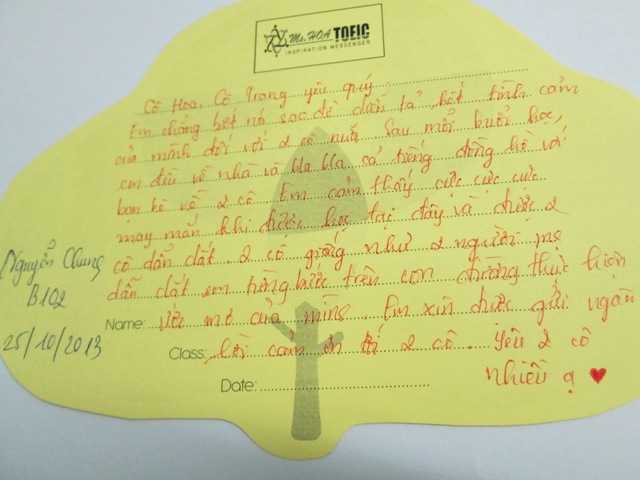 Ms. HOA TOEIC
INSPIRATION MESSENGER
Cô Hoa, Cô Trang yêu quý
Em chẳng biết nói sao để diễn tả hết tình cảm
của mình đối với 2 cô nữa. Sau mỗi buổi học,
em đều về nhà và bla bla cả tiếng đồng hồ với
bạn bè về 2 cô. Em cảm thấy cực cực cực
may mắn khi được học tại đây và được 2
cô dẫn dắt. 2 cô giống như 2 người mẹ
dẫn dắt em từng bước trên con đường thực hiện
Name: ước mơ của mình. Em xin được gửi ngàn
Class: lời cảm ơn tới 2 cô. Yêu 2 cô
Date: nhiều ạ ♥
Nguyễn Chung
B102
25/10/2013